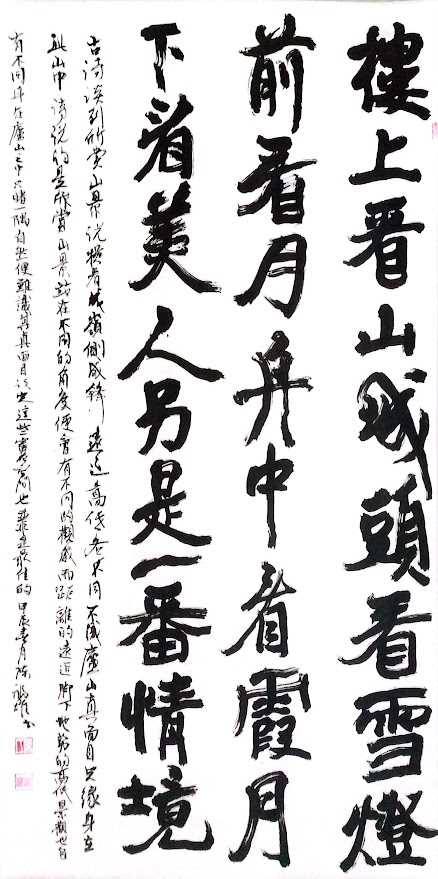 樓上看山城頭看雪燈
前看月舟中看霞月
下看美人另是一番情境
古詩談到欣賞山景說橫看成嶺側成鋒遠近高低各不同不識廬山真面目只緣身在
此山中詩說的是欣賞山景站在不同的角度便會有不同的觀感而距離的遠近腳下地勢的高低景觀也自
有不同身在廬山之中只睹一隅自然便難識其真面目 這些 也 是最佳的甲辰春月陳 書